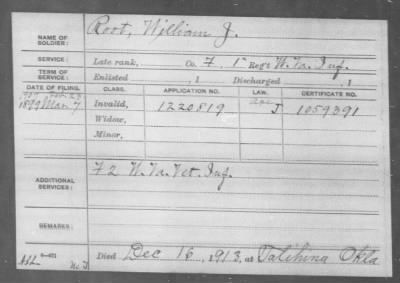 NAME OF SOLDIER: Root, William J.
SERVICE: Late rank, Co. F, 1" Reg't W. Va. Inf.
TERM OF SERVICE: Enlisted , 1 Discharged , 1
DATE OF FILING. CLASS. APPLICATION NO. LAW. CERTIFICATE NO.
1899 Mar 7 Invalid, 1220819 J 1059391
Widow,
Minor,
ADDITIONAL SERVICES: F2 W. Va. Vet. Inf.
REMARKS:
Died Dec 16, 1913, at Talihina Okla